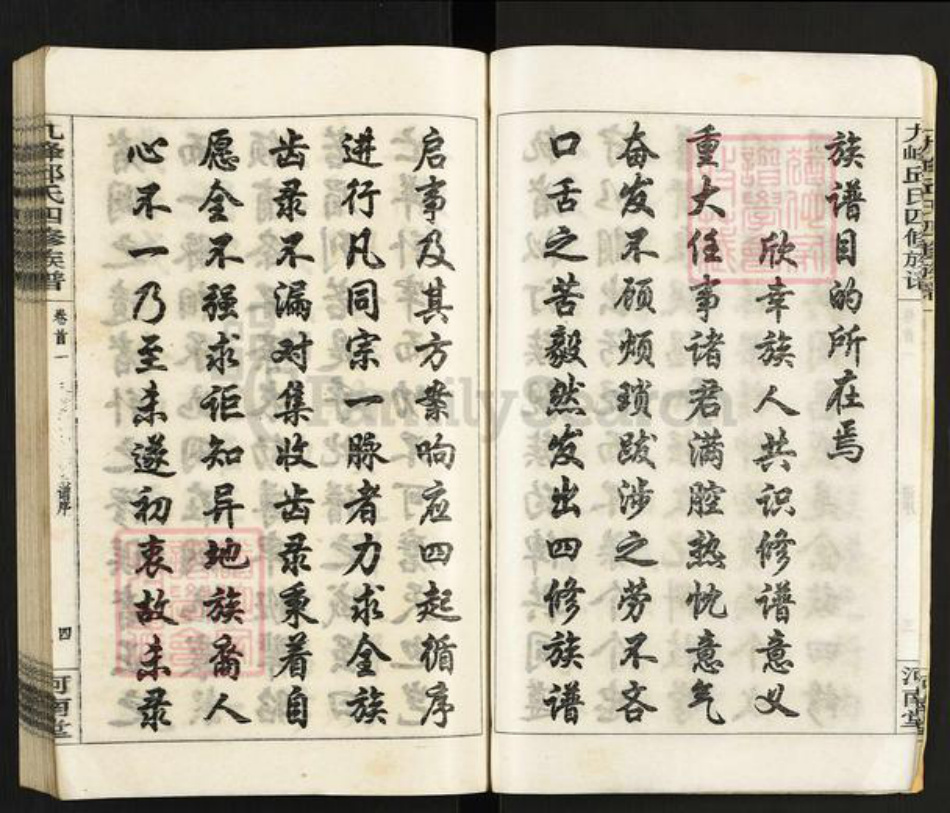 九峰邱氏四修族谱
河南堂
族谱目的所在焉
欣幸族人共识修谱意义
重大任事诸君满腔热忱意气
奋发不顾烦琐跋涉之劳不吝
口舌之苦毅然发出四修族谱
启事及其方案响应四起循序
进行凡同宗一脉者力求全族
齿录不漏对集收齿录秉着自
愿全不强求讵知异地族裔人
心不一乃至未遂初衷故未录
九峰邱氏四修族谱
卷首一
谱序
四
河南堂
FamilySearch